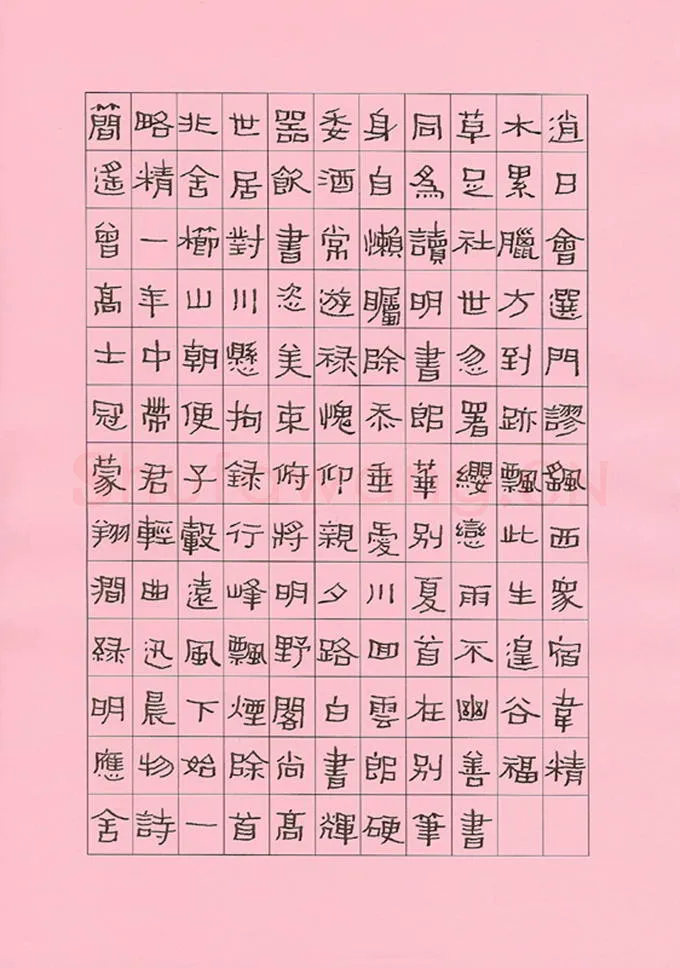 簡略非世器委身同草木逍
遙精舍居飲酒自爲足累日
曾一櫛對書常懶讀社臘會
高年山川恣遊矚明世方選
士中朝懸美禄除書忽到門
冠帶便拘束愧忝郎署跡謬
蒙君子録俯仰垂華纓飄颻
翔輕轂行將親愛別戀此西
澗曲遠峰明夕川夏雨生衆
緑迅風飄野路回首不遑宿
明晨下煙閣白雲在幽谷韋
應物始除尚書郎別善福精
舍詩一首高輝硬筆書
Shufawang.CN